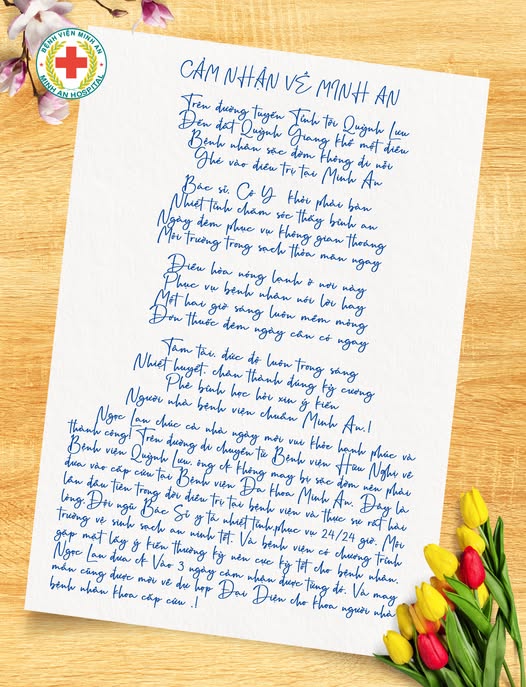 BỆNH VIỆN MINH AN
MINH AN HOSPITAL
CẢM NHẬN VỀ MINH AN
Trên đường tuyến Tỉnh tới Quỳnh Lưu
Đến đất Quỳnh Giang khổ một điều
Bệnh nhân sặc đờm không đi nổi
Ghé vào điều trị tại Minh An
Bác sĩ, Cô Y khỏi phải bàn
Nhiệt tình chăm sóc thấy bình an
Ngày đêm phục vụ không gian thoáng
Môi trường trong sạch thỏa mãn ngay
Điều hòa nóng lạnh ở nơi này
Phục vụ bệnh nhân nói lời hay
Một hai giờ sáng luôn mềm mỏng
Đơn thuốc đêm ngày cần có ngay
Tâm tài, đức độ luôn trong sáng
Nhiệt huyết, chân thành đúng kỷ cương
Phê bình học hỏi xin ý kiến
Người nhà bệnh viện chuẩn Minh An.!
Ngọc Lan chúc cả nhà ngày mới vui khỏe hạnh phúc và
thành công! Trên đường di chuyển từ Bệnh viện Hữu Nghị về
Bệnh viện Quỳnh Lưu, ông A không may bị sặc đờm nên phải
đưa vào cấp cứu tại Bệnh viện Đa Khoa Minh An. Đây là
lần đầu tiên trong đời điều trị tại bệnh viện và thực sự rất hài
lòng. Đội ngũ Bác Sĩ y tá nhiệt tình, phục vụ 24/24 giờ. Môi
trường vệ sinh sạch an ninh tốt. Và bệnh viện có chương trình
gặp mặt lấy ý kiến thường kỳ nên cực kỳ tốt cho bệnh nhân.
Ngọc Lan đưa A Vào 3 ngày cảm nhận được từng đó. Và may
mắn cũng được mời về dự họp Đại Diện cho khoa người nhà
bệnh nhân khoa cấp cứu .!